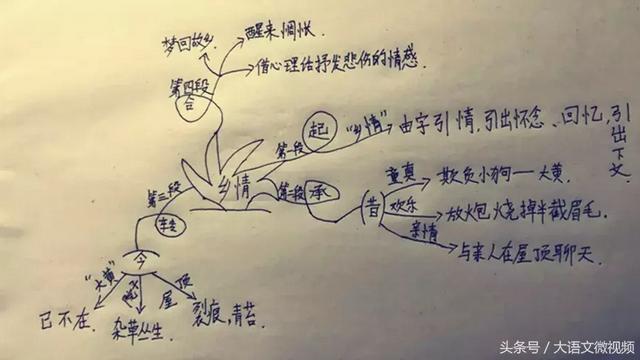 梦回故乡
醒来惆怅
借心理活抒发悲伤的情感
第四段
合
乡情
第一段
起
"乡情"
由字引情,引出怀念、回忆,引出下文
第二段
承
昔
童真
欺负小狗一大黄.
欢乐
放火包烧掉半截眉毛.
亲情
与亲人在屋顶聊天.
第三段
转
今
"大黄"
已不在.
杂草丛生.
屋顶
裂痕,青苔.
头条号/大语文微视频